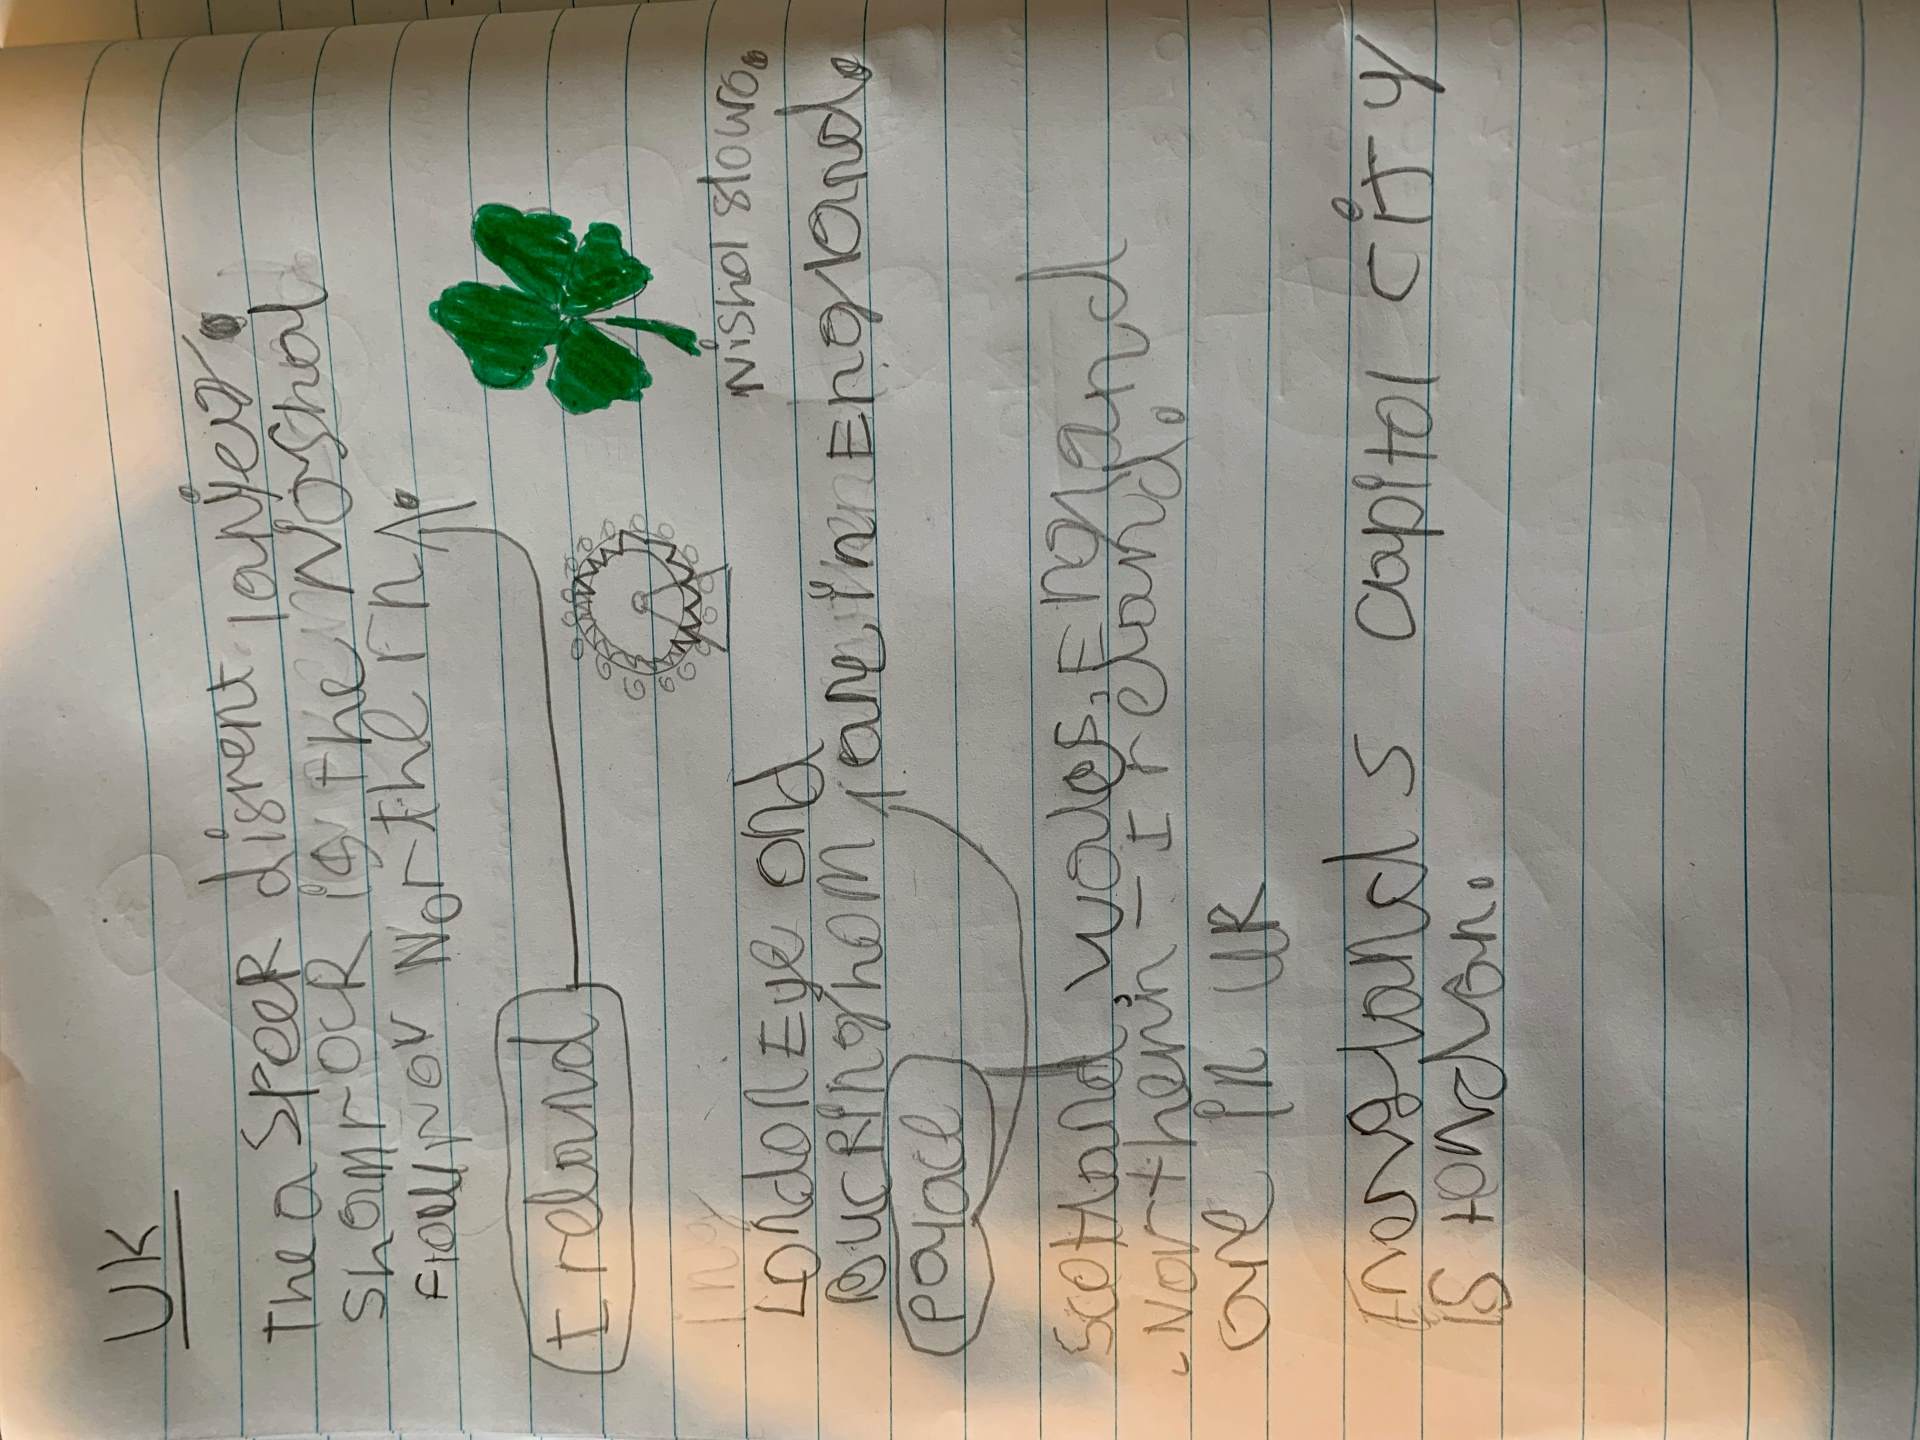 UK
Thea speek disrent lanyeis.
Shamrock is the Noshnal
flouwov Nor the rn
Ireland
Nishol slowro.
London Eye and
Buckingham are in England.
Palace
Scotland, wales, England
Northenin - Ireland.
are in UK
England s capital city
is London.